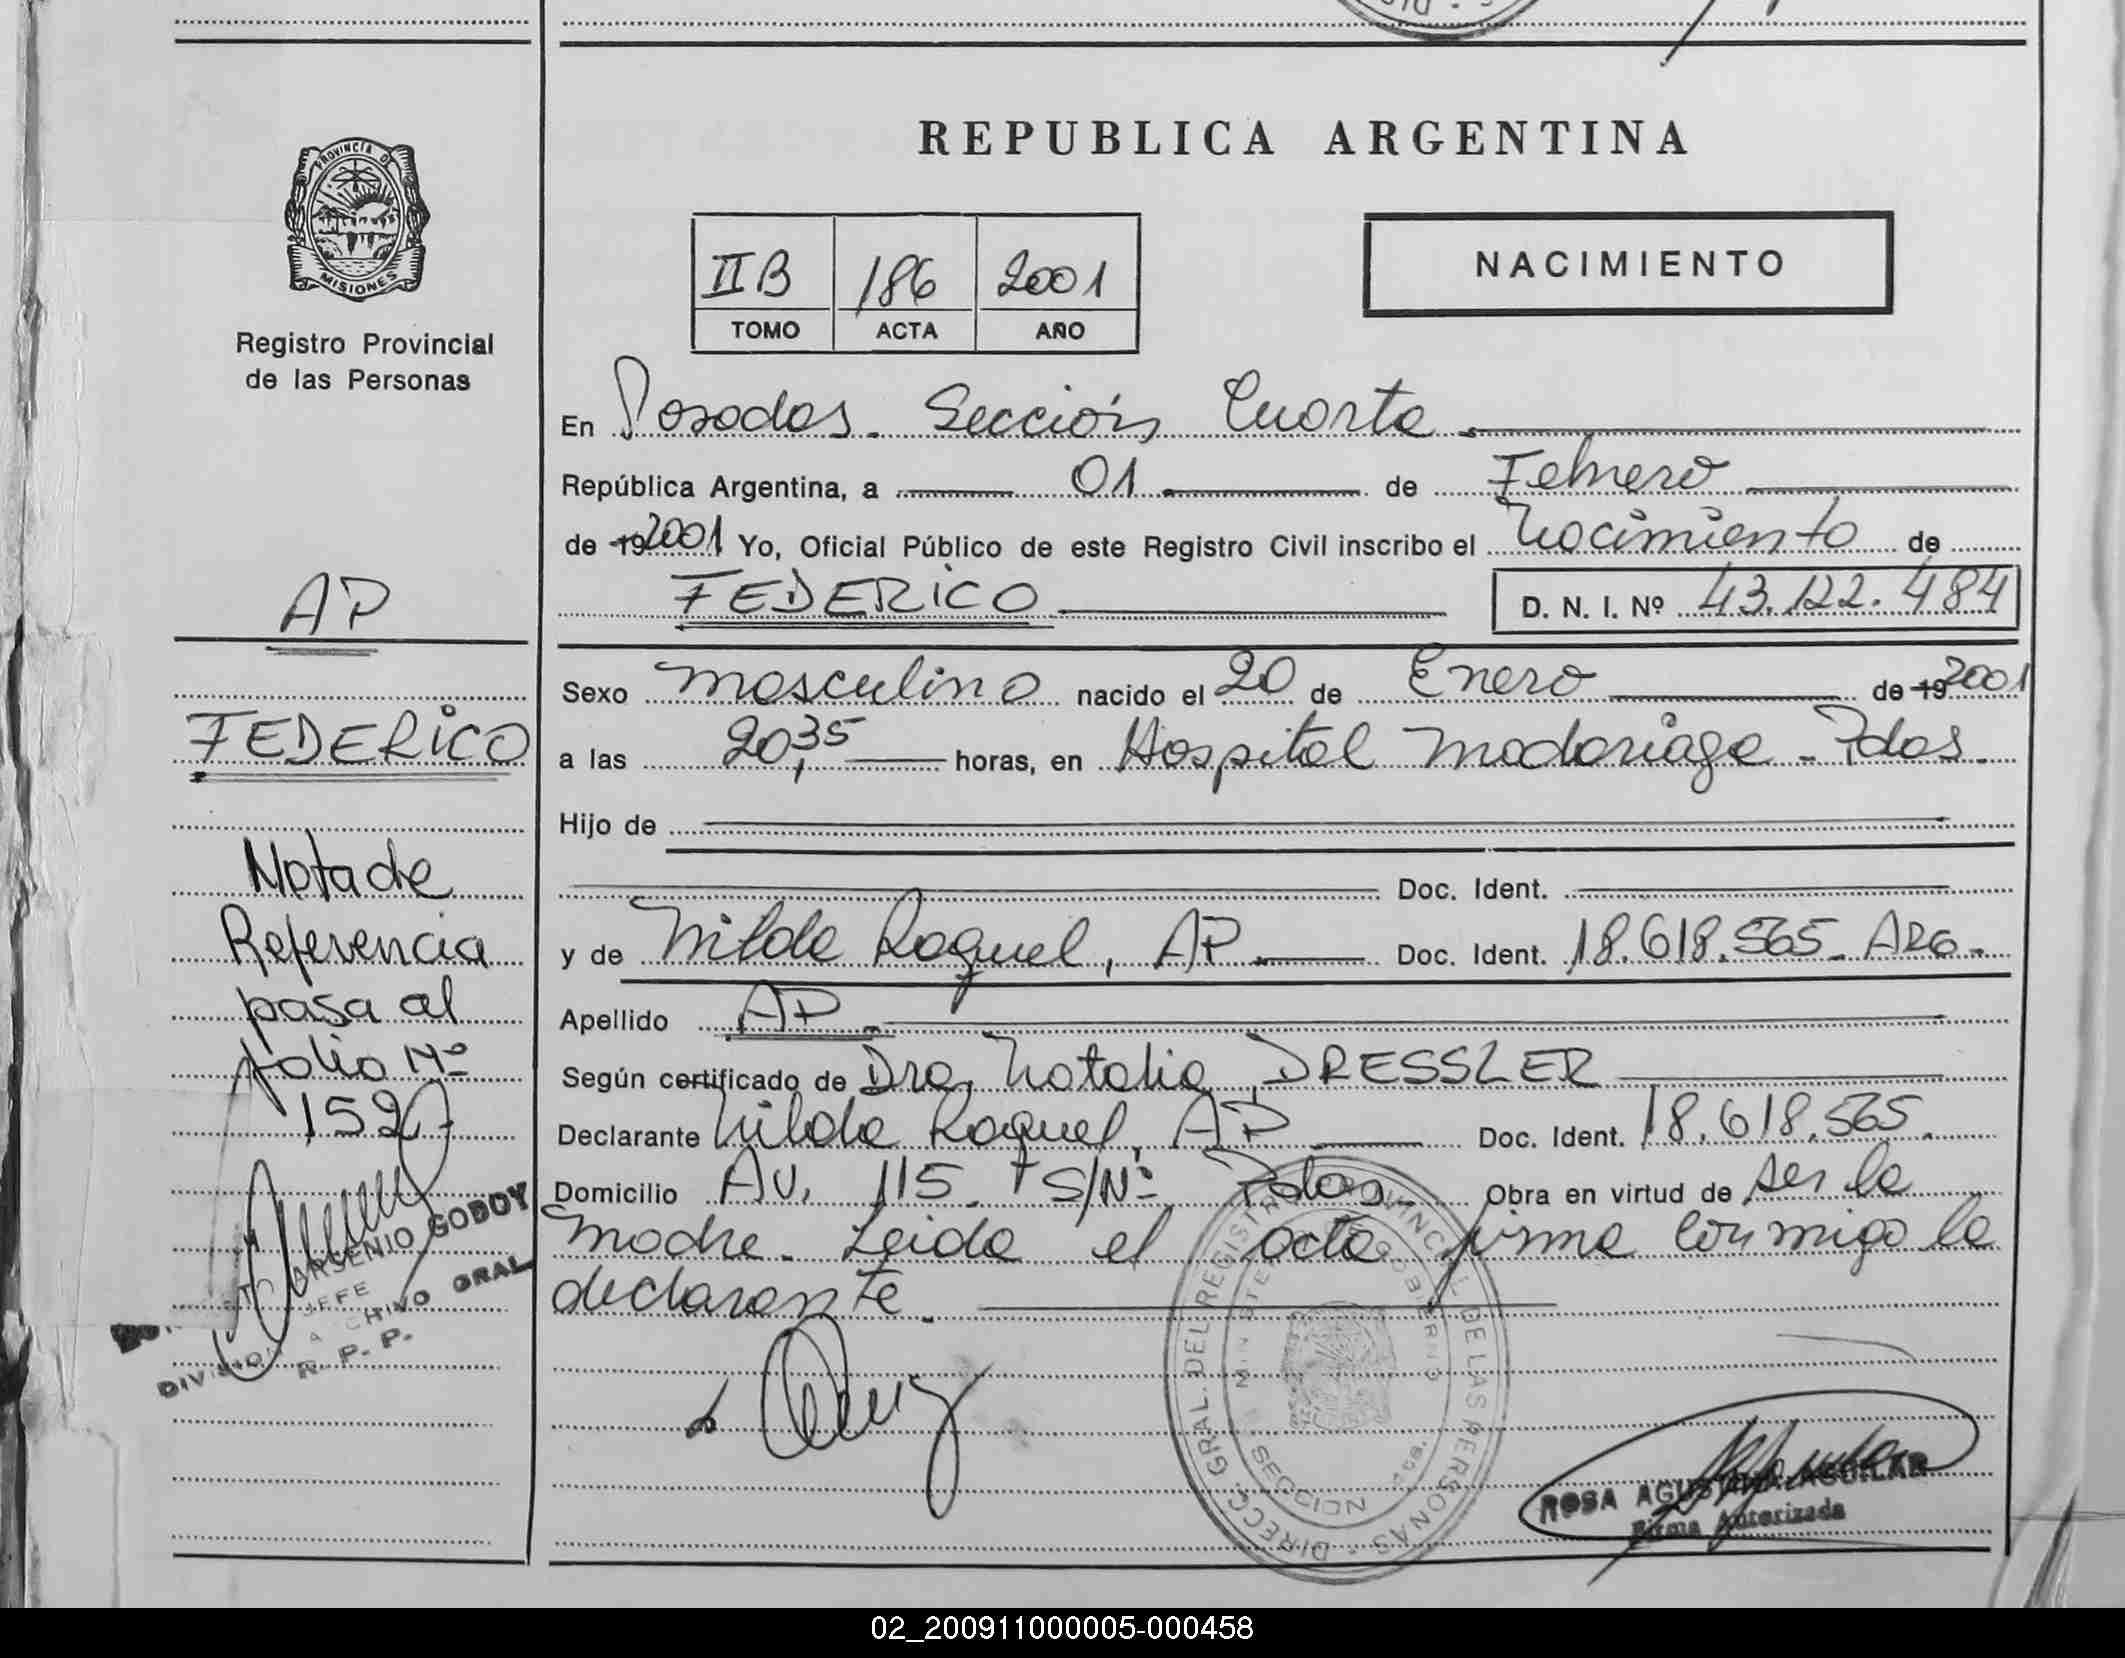 REPUBLICA ARGENTINA
PROVINCIA DE
MISIONES
Registro Provincial
de las Personas
II B 186 2001
TOMO ACTA AÑO
NACIMIENTO
En Posadas. Sección Cuarta.
República Argentina, a 01 de Febrero
de 19 2001 Yo, Oficial Público de este Registro Civil inscribo el Nacimiento de
FEDERICO D. N. I. Nº 43.122.484
AP
FEDERICO
Nota de
Referencia
pasa al
folio Nº
152
ARSENIO GODOY
JEFE
DIVISION ARCHIVO GRAL
R. P. P.
Sexo masculino nacido el 20 de Enero de 19 2001
a las 20,35 horas, en Hospital Madariaga - Pdas.
Hijo de
Doc. Ident.
y de Nilda Raquel, AP. Doc. Ident. 18.618.565. ARG.
Apellido AP.
Según certificado de Dra. Natalia DRESSLER
Declarante Nilda Raquel, AP Doc. Ident. 18.618.565.
Domicilio AV. 115. S/Nº Pdas. Obra en virtud de ser la
madre. Leida el acta firma conmigo la
declarante.
DIRECC. GRAL. DEL REGISTRO PROVINCIAL DE LAS PERSONAS
SECCION
ROSA AGUSTINA AGUILAR
Firma Autorizada
02_200911000005-000458